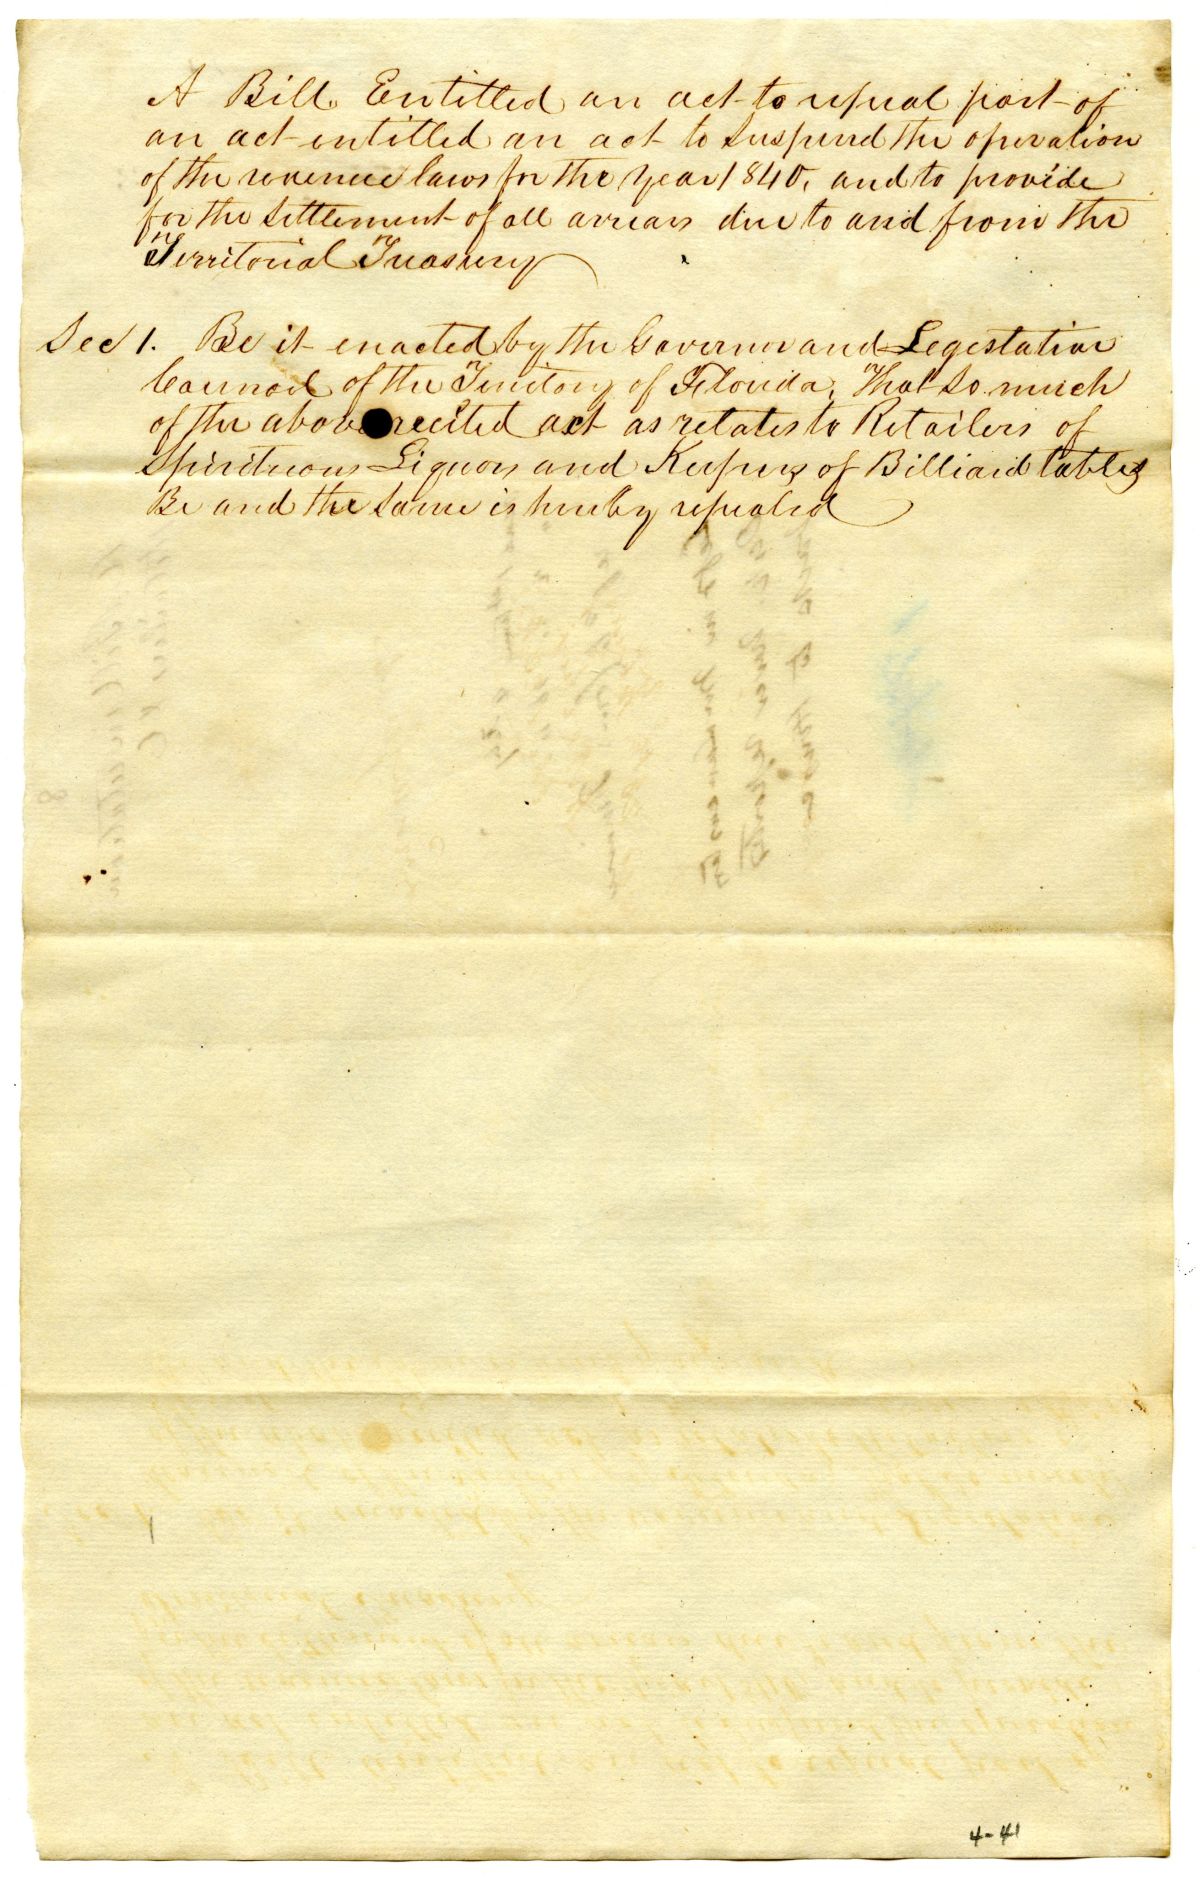 A Bill Entitled an act to repeal part of
an act entitled an act to suspend the operation
of the revenue laws for the year 1840, and to provide
for the settlement of all arrears due to and from the
Territorial Treasury
Sec 1. Be it enacted by the Governor and Legestative
Council of the Territory of Florida, That so much
of the above recited act as relates to Retailers of
Spirituous Liquors and Keepers of Billiard tables
Be and the same is hereby repealed
4-41